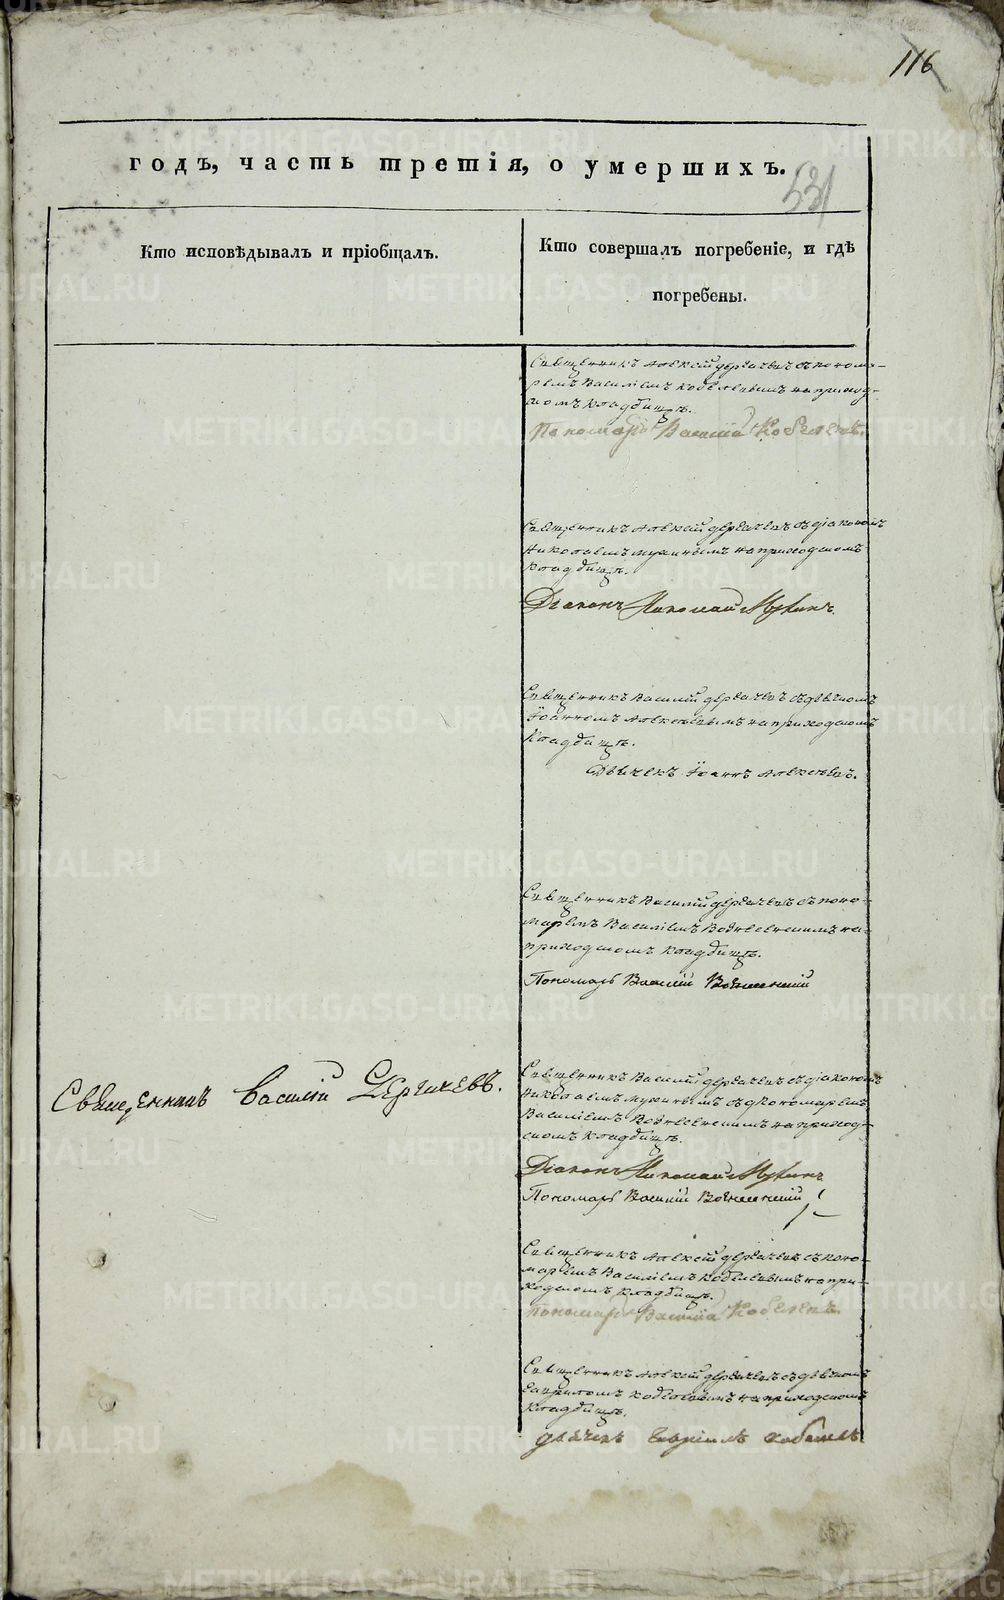 116
годъ, часть третія, о умершихъ.
531
Кто исповѣдывалъ и пріобщалъ.
Кто совершалъ погребеніе, и гдѣ
погребены.
Священникъ Алексій Дергачевъ съ понома-
ремъ Василіемъ Кобелевымъ на приход-
скомъ кладбищѣ.
Пономарь Василій Кобелевъ.
Священникъ Алексій Дергачевъ съ діакономъ
Николаемъ Мухинымъ на приходскомъ
кладбищѣ.
Діаконъ Николай Мухинъ.
Священникъ Василій Дергачевъ съ дьячкомъ
Іоанномъ Алексѣевымъ на приходскомъ
кладбищѣ.
Дьячекъ Іоаннъ Алексѣевъ.
Священникъ Василій Дергачевъ съ поно-
маремъ Василіемъ на
приходскомъ кладбищѣ.
Пономарь Василій
Священникъ Василій Дергачевъ.
Священникъ Василій Дергачевъ съ діакономъ
Николаемъ Мухинымъ съ пономаремъ
Василіемъ на приход-
скомъ кладбищѣ.
Діаконъ Николай Мухинъ
Пономарь Василій
Священникъ Алексій Дергачевъ съ поно-
маремъ Василіемъ Кобелевымъ на при-
ходскомъ кладбищѣ.
Пономарь Василій Кобелевъ.
Священникъ Алексій Дергачевъ съ дьячкомъ
Гавріиломъ Кобелевымъ на приходскомъ
кладбищѣ.
Дьячекъ Гавріилъ Кобелевъ
METRIKI.GASO-URAL.RU